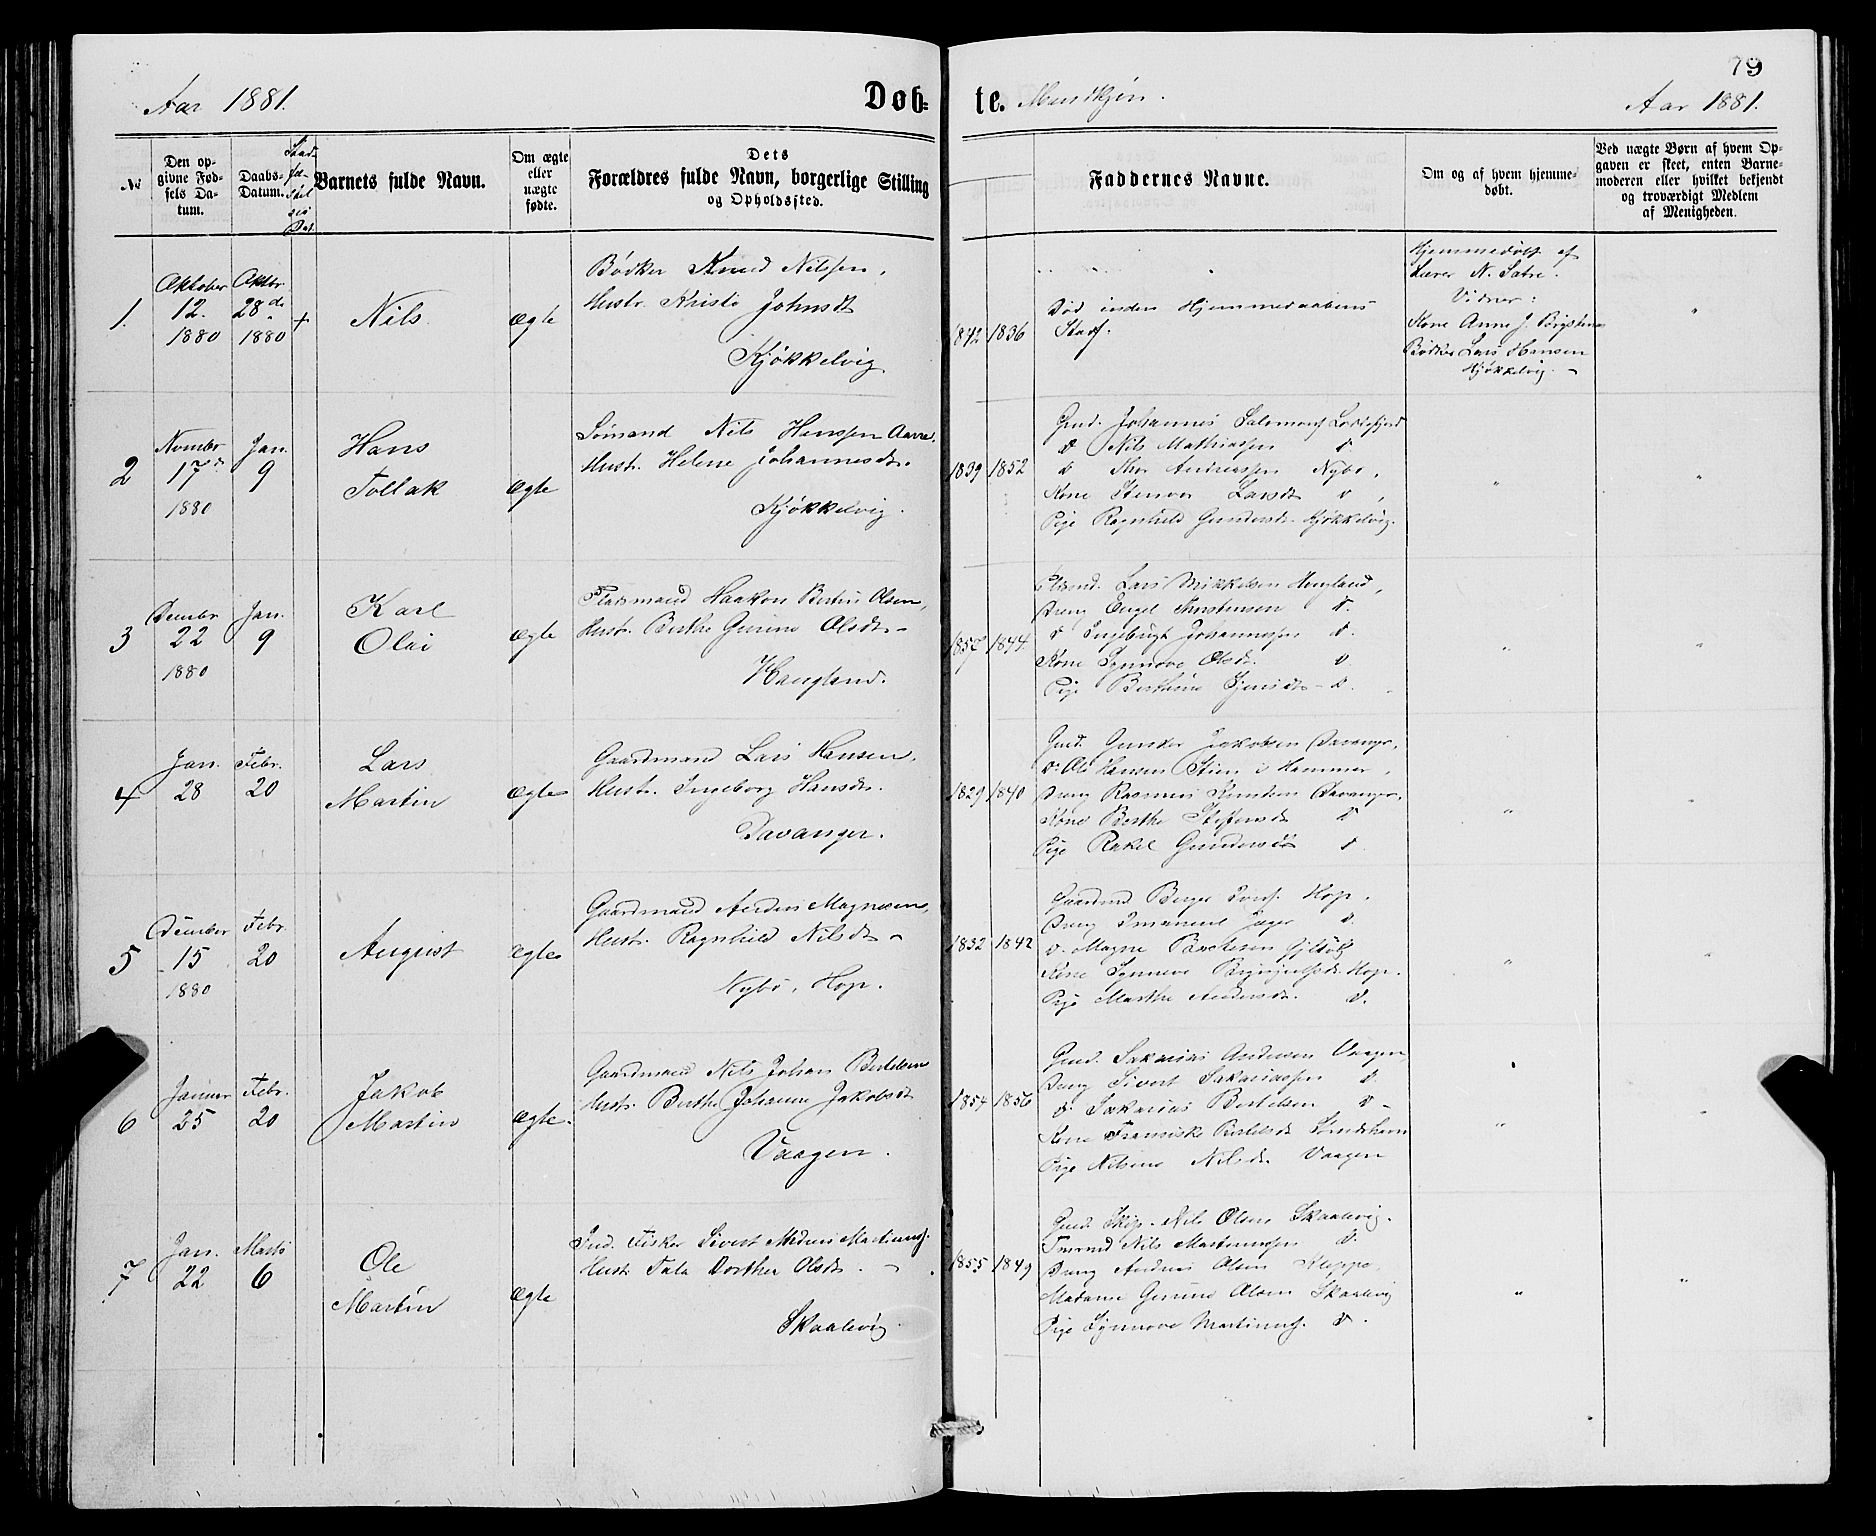 79
Aar 1881.
Døb-
te.
Mandkjøn.
Aar 1881.
№
Den op-
givne Fød-
sels Da-
tum.
Daabs-
Datum.
Barnets fulde Navn.
Om ægte
eller
uægte
fødte.
Dets
Forældres fulde Navn, borgerlige Stilling
og Opholdssted.
Faddernes Navne.
Om og af hvem hjemme-
døbt.
Ved uægte Børn af hvem Op-
gaven er skeet, enten Barne-
moderen eller hvilket bekjendt
og troværdigt Medlem
af Menigheden.
1.
Oktober
12.
1880
Oktbr
28de
1880
+
Nils
ægte
Bødker Knud Nilssen,
Hustr. Kristi Johnsdt
Kjøkkelvig
1842 1836
Død inden Hjemmedaabens
Stadf.
Hjemmedøbt af
Lærer N. Sætre.
Vidner:
Kone Anne J.
Bødker Lars Hansen
Kjøkkelvig
2
Novmbr
17de
1880
Jan.
9
Hans
Tollak
ægte
Sømand Nils Hanssen Aarre.
Hustr. Helene Johannesdtr.
Kjøkkelvig.
1839 1852
Gmd. Johannes Salomons
d Nils Mathiassen d.
d Thor Andreassen Nybø,
Kone Larsdt d
Pige Ragnhild Gundersdt. Kjøkkelvig.
3
Decmbr
22
1880
Jan.
9
Karl
Olai
ægte
Pladsmand Haakon Bertin Olsen,
Hustr. Berthe Gurine Olsdtr
Haugland.
1857 1844
Plsmd. Lars Mikkelsen Haugland,
Dreng Engel Thorstensen d.
d Ingebrigt Johannessen d.
Kone Synnøve Olsdtr. d.
Pige Berthine d.
4
Jan.
28
Febr.
20
Lars
Martin
ægte
Gaardmand Lars Hansen,
Hustr. Ingeborg Hansdt.
Davanger.
1829 1840
Gmd. Gunder Jakobsen Davanger,
d. Ole Hansen Stien i Hammer,
Dreng Rasmus Knudsen Davanger,
Kone Berthe Steffensdt d
Pige Rakel Gundersdt d.
5
Decmber
15
1880
Febr.
20
August
ægte
Gaardmand Anders Magnesen,
Hustr. Ragnhild Nilsdt
Nybø, Hop.
1832 1842
Gaardmd Berge Hop.
Dreng Imanuel d.
d. Magne
Kone Synneve Brynjulfsdt. Hop.
Pige Marthe Andersdt. d.
6
Januar
25
Febr.
20
Jakob
Martin
ægte.
Gaardmand Nils Johan Bertelsen
Hustr. Berthe Johanne Jakobsdt
Vaagen.
1854 1856
Gmd. Sakarias Andersen Vaagen
Dreng Sivert Sakariassen d
d. Sakarias Bertelsen d
Kone Fransiske Bertelsdt
Pige Nilsine Nilsdtr Vaagen
7
Jan.
22
Marts
6
Ole
Martin
ægte
Ind. Fisker Sivert Martinus.
Hustr Dorthea Olsdtr.
Skaalevig.
1855 1849
Gmd. Skip. Nils Olsen Skaalevig.
Nils Martinussen d.
Dreng Andreas Olsen Kleppe,
Madame Gurine Olsen Skaalevig
Pige Synnøve Martinus. d.